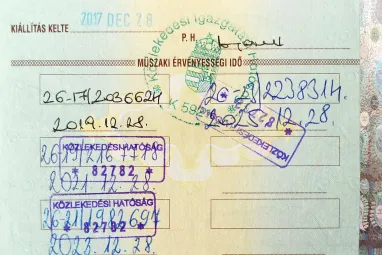 KIÁLLÍTÁS KELTE
2017 DEC 28.
P. H.
MŰSZAKI ÉRVÉNYESSÉGI IDŐ
26-17/2036624
2019.12.28.
26-19/2167718
KÖZLEKEDÉSI HATÓSÁG
* 82782 *
2021.12.28.
26-21/1982694
KÖZLEKEDÉSI HATÓSÁG
* 82782 *
2023.12.28.
26-23/2238314.
2025.12.28.
KÖZLEKEDÉSI HATÓSÁG
* 82782 *